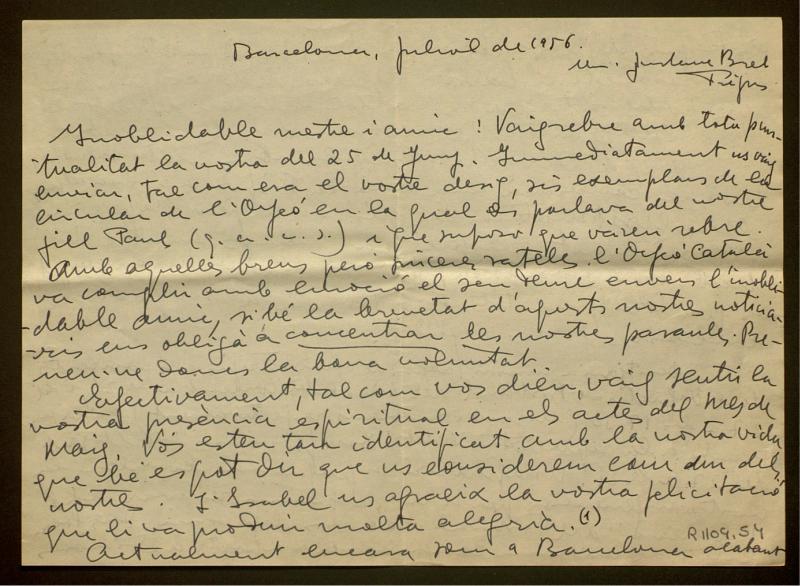 Barcelona, juliol de 1956.
M. Gustave Bret
Fréjus
Inoblidable mestre i amic! Vaig rebre amb tota pun-
tualitat la vostra del 25 de Juny. Immediatament us vaig
enviar, tal com era el vostre desig, sis exemplars de la
circular de l'Orfeó en la qual es parlava del nostre
fill Paul (q. a. i. c. s.) i que suposo que vàren rebre.
Amb aquelles breus però sinceres ratlles l'Orfeó Català
va complir amb emoció el seu deure envers l'inobli-
dable amic, si bé la brevetat d'aquests nostres noticia-
ris ens obligà a concentrar les nostres paraules. Pre-
neu-ne doncs la bona voluntat.
Efectivament, tal com vos dièu, vaig sentir la
vostra presència espiritual en els actes del mes de
Maig. Vós esteu tan identificat amb la nostra vida
que bé es pot dir que us considerem com un dels
nostres. L'Isabel us agraeix la vostra felicitació
que li va produir molta alegria. (1)
R 1109.54
Actualment encara som a Barcelona acabant